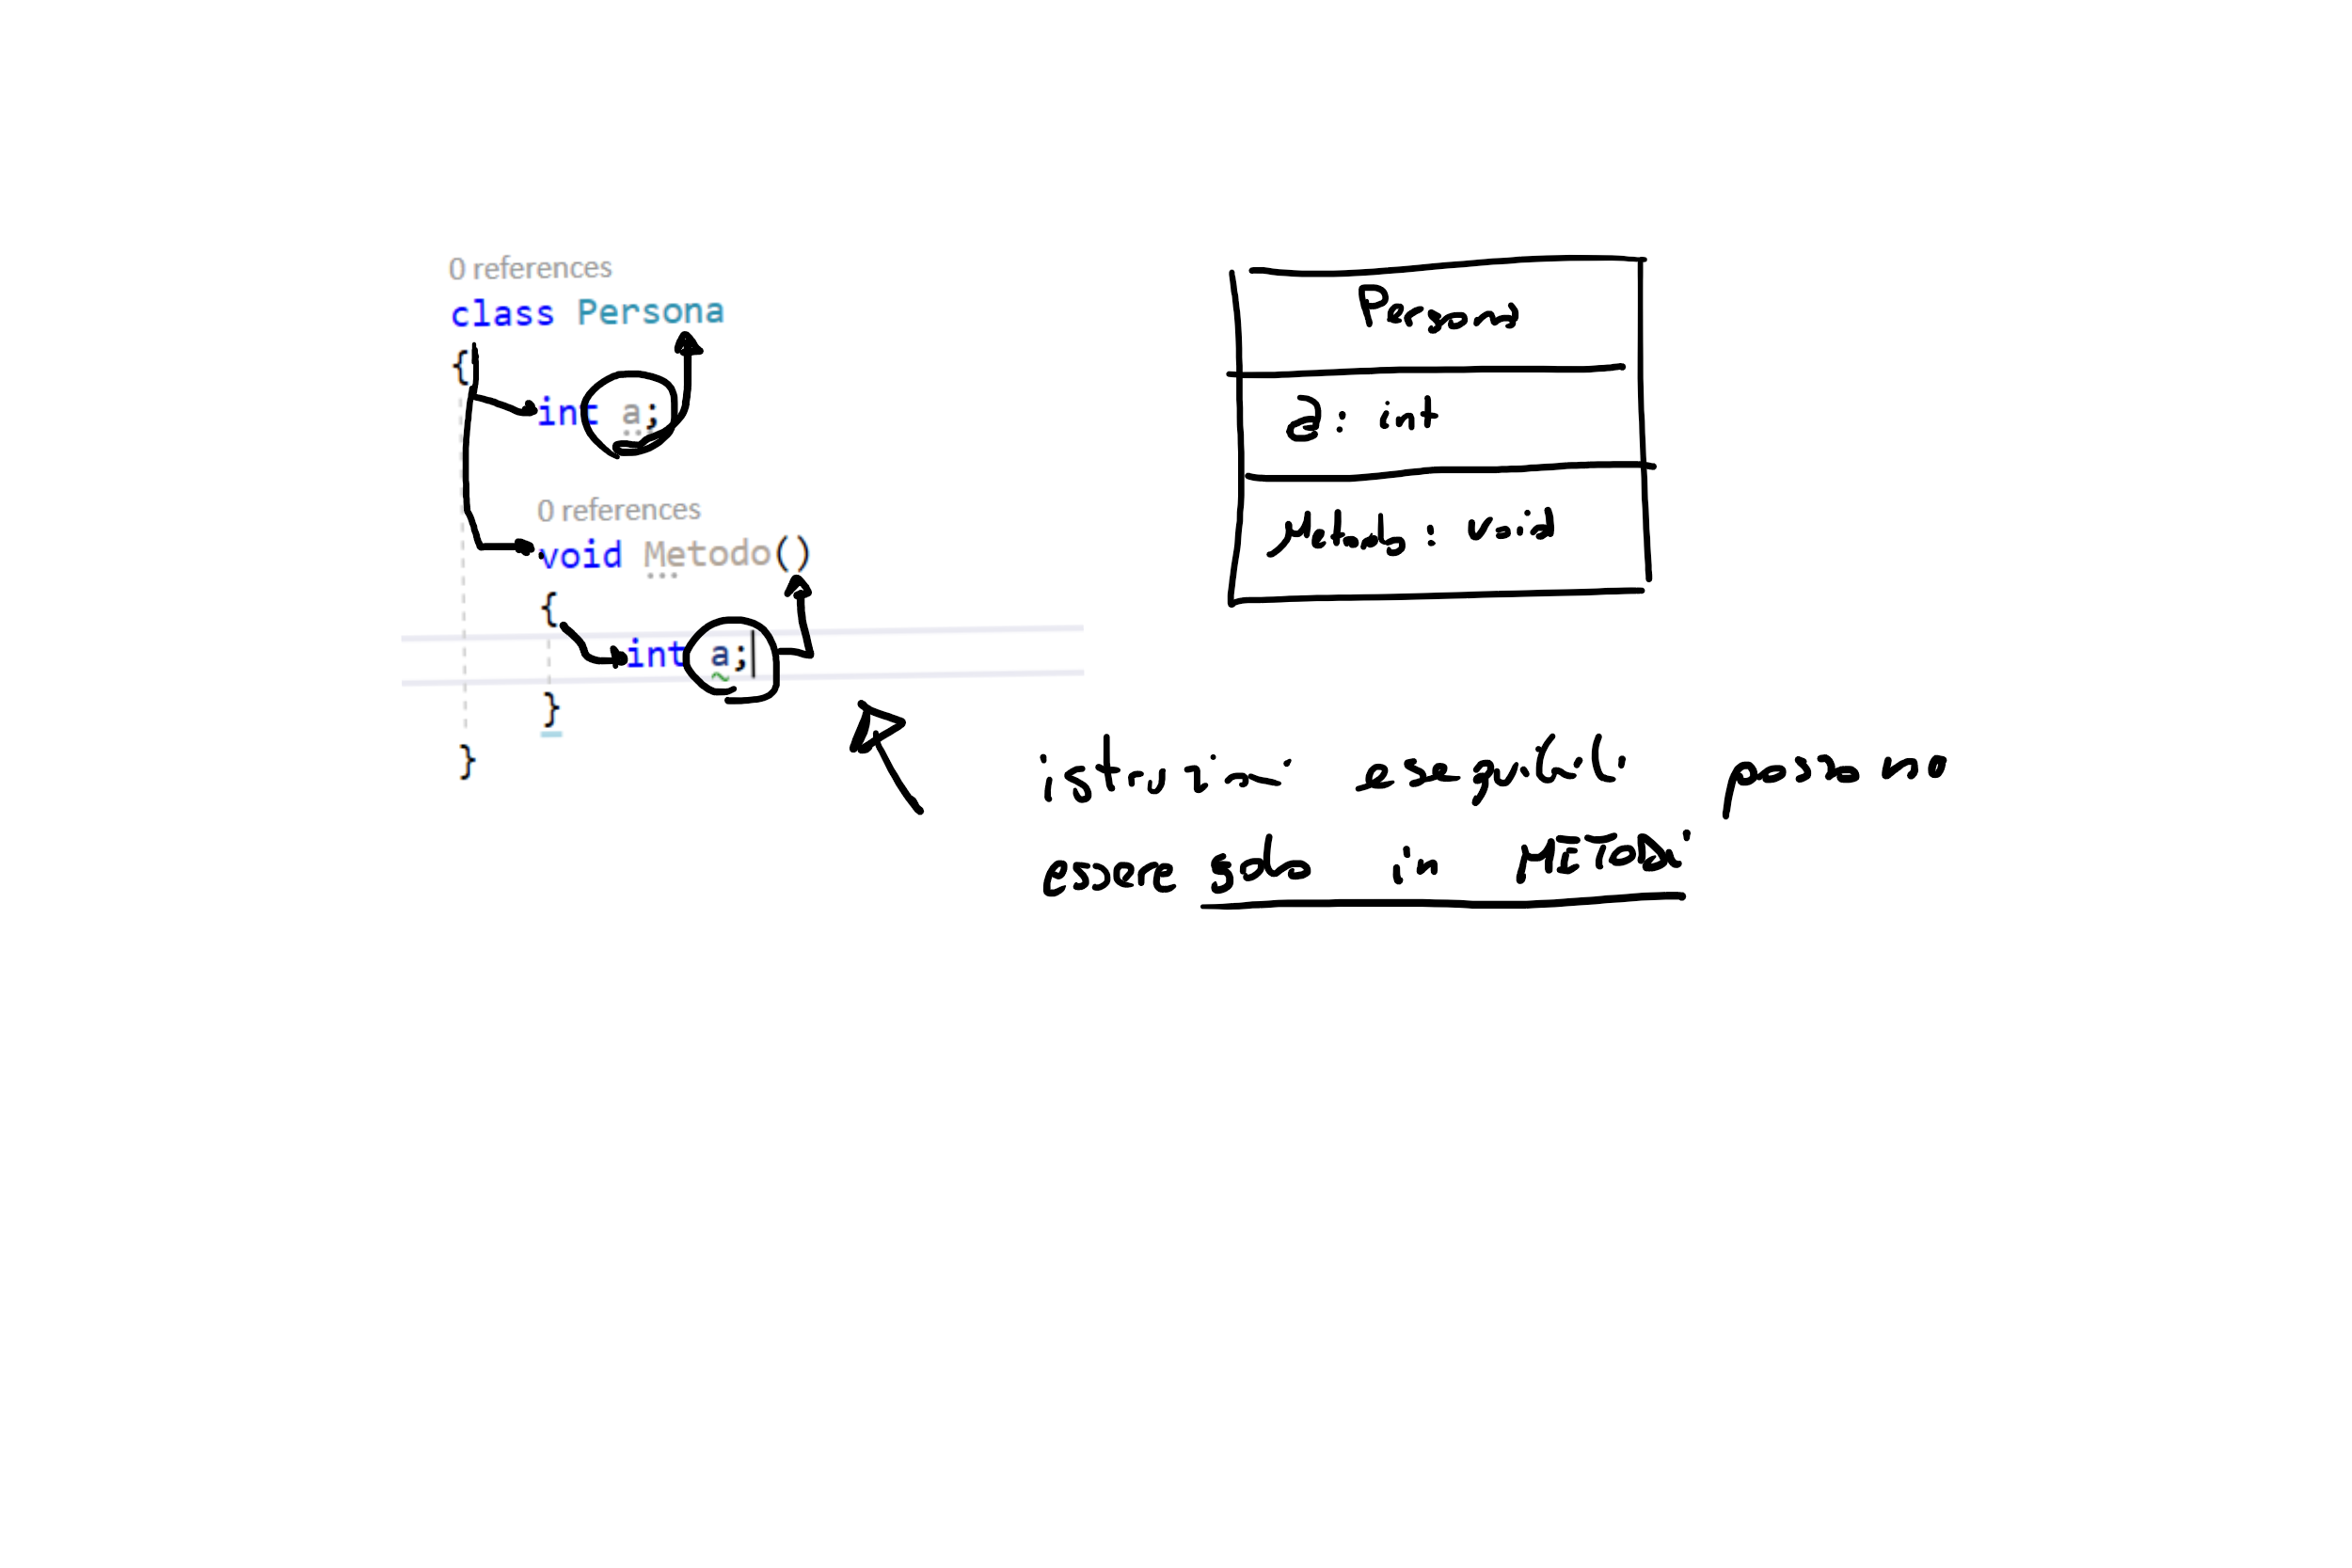 0 references
class Persona
{
int a;
0 references
void Metodo()
{
int a;
}
}
Persona
a: int
Metodo: void
istruzioni eseguibili possono
essere solo in METODI